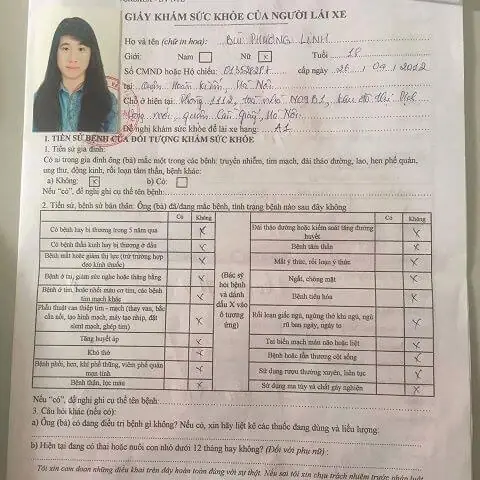 GIẤY KHÁM SỨC KHỎE CỦA NGƯỜI LÁI XE
Họ và tên (chữ in hoa): BÙI PHƯƠNG LINH
Giới: Nam Nữ X Tuổi 18
Số CMND hoặc Hộ chiếu: cấp ngày 26 / 09 / 2012
tại Quận Hoàn Kiếm, Hà Nội
Chỗ ở hiện tại: Phòng 1112, toà nhà N09B1, khu đô thị Dịch
Vọng mới, quận Cầu Giấy, Hà Nội
Đề nghị khám sức khỏe để lái xe hạng: A1
I. TIỀN SỬ BỆNH CỦA ĐỐI TƯỢNG KHÁM SỨC KHỎE
1. Tiền sử gia đình:
Có ai trong gia đình ông (bà) mắc một trong các bệnh: truyền nhiễm, tim mạch, đái tháo đường, lao, hen phế quản,
ung thư, động kinh, rối loạn tâm thần, bệnh khác:
a) Không: X b) Có:
Nếu "có", đề nghị ghi cụ thể tên bệnh:
2. Tiền sử, bệnh sử bản thân: Ông (bà) đã/đang mắc bệnh, tình trạng bệnh nào sau đây không
Có Không
Có bệnh hay bị thương trong 5 năm qua X
Có bệnh thần kinh hay bị thương ở đầu X
Bệnh mắt hoặc giảm thị lực (trừ trường hợp
đeo kính thuốc) X
Bệnh ở tai, giảm sức nghe hoặc thăng bằng X
Bệnh ở tim, hoặc nhồi máu cơ tim, các bệnh
tim mạch khác X
Phẫu thuật can thiệp tim - mạch (thay van, bắc
cầu nối, tạo hình mạch, máy tạo nhịp, đặt
slent mạch, ghép tim) X
Tăng huyết áp X
Khó thở X
Bệnh phổi, hen, khí phế thũng, viêm phế quản
mạn tính X
Bệnh thận, lọc máu X
(Bác sỹ
hỏi bệnh
và đánh
dấu X vào
ô tương
ứng)
Có Không
Đái tháo đường hoặc kiểm soát tăng đường
huyết X
Bệnh tâm thần X
Mất ý thức, rối loạn ý thức X
Ngất, chóng mặt X
Bệnh tiêu hóa X
Rối loạn giấc ngủ, ngừng thở khi ngủ, ngủ
rũ ban ngày, ngáy to X
Tai biến mạch máu não hoặc liệt X
Bệnh hoặc tổn thương cột sống X
Sử dụng rượu thường xuyên, liên tục X
Sử dụng ma túy và chất gây nghiện X
Nếu "có", đề nghị ghi cụ thể tên bệnh:
3. Câu hỏi khác (nếu có):
a) Ông (bà) có đang điều trị bệnh gì không? Nếu có, xin hãy liệt kê các thuốc đang dùng và liều lượng:
b) Hiện tại đang có thai hoặc nuôi con nhỏ dưới 12 tháng hay không? (Đối với phụ nữ):
Tôi xin cam đoan những điều khai trên đây hoàn toàn đúng với sự thật. Nếu sai tôi xin chịu trách nhiệm trước pháp luật